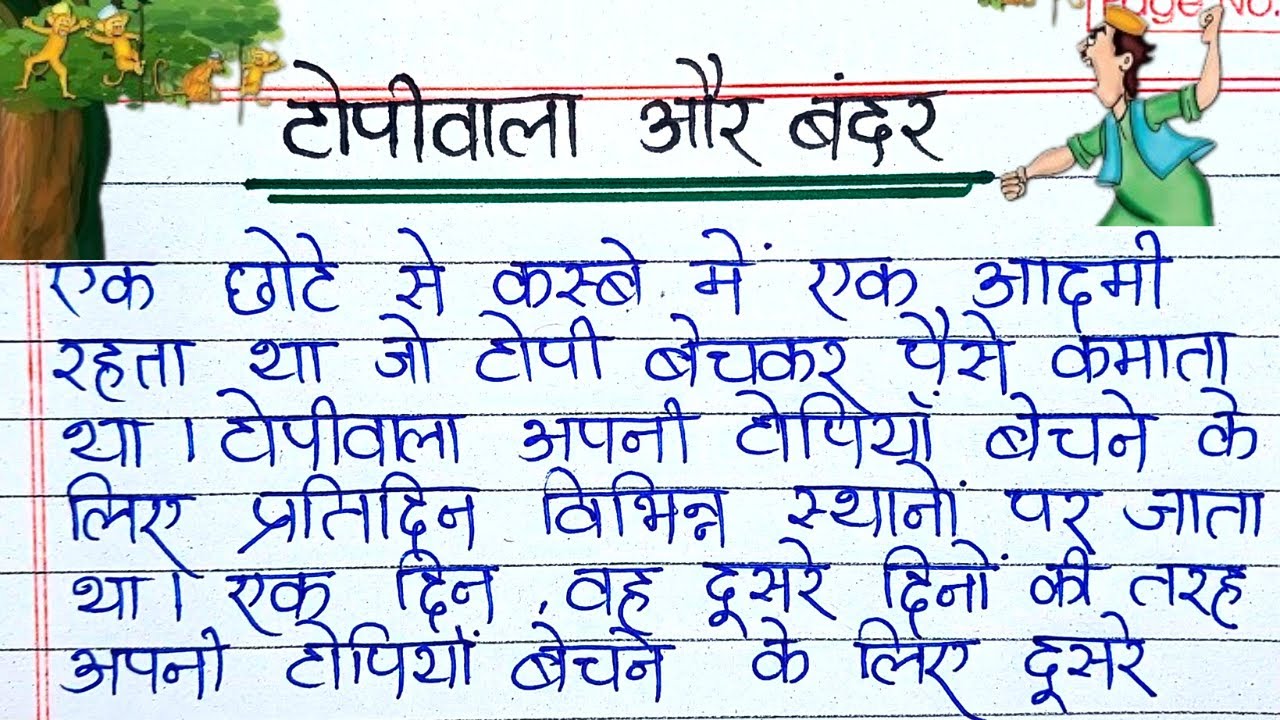 Page No.
टोपीवाला और बंदर
एक छोटे से कस्बे में एक आदमी
रहता था जो टोपी बेचकर पैसे कमाता
था। टोपीवाला अपनी टोपियाँ बेचने के
लिए प्रतिदिन विभिन्न स्थानों पर जाता
था। एक दिन, वह दूसरे दिनों की तरह
अपनी टोपियों बेचने के लिए दूसरे